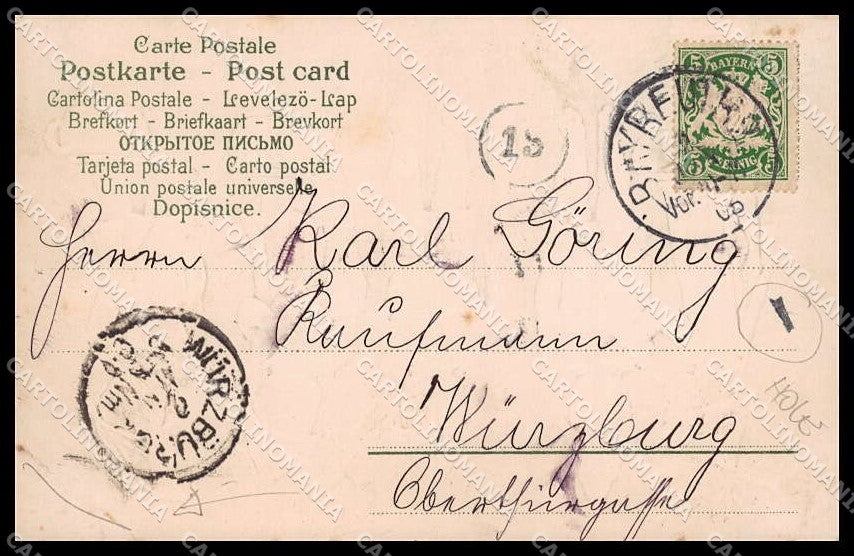 Carte Postale
Postkarte - Post card
Cartolina Postale - Levelező-Lap
Brefkort - Briefkaart - Brevkort
ОТКРЫТОЕ ПИСЬМО
Tarjeta postal - Carto postal
Union postale universelle
Dopisnice.
15
BAYERN
5 5
PFENNIG
5 5
BAYREUTH
Vorm.
Herrn Karl Göring
Kaufmann
Würzburg
Oberthürgasse
WÜRZBURG
HOLE
CARTOLINOMANIA